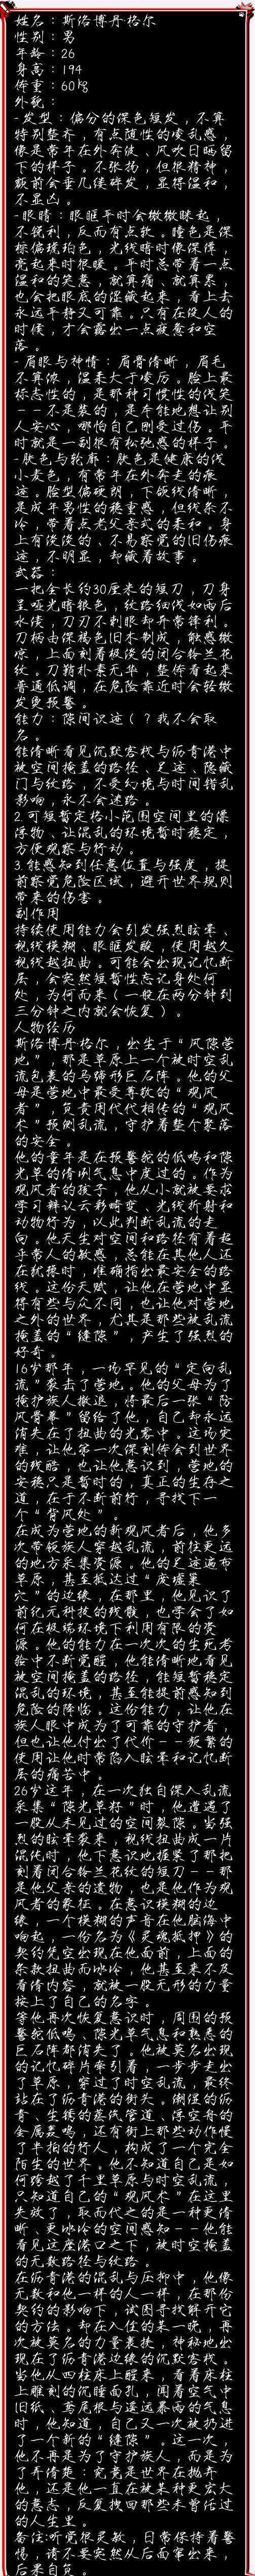 姓名：斯洛博丹·格尔
性别：男
年龄：26
身高：194
体重：60kg
外貌：
-发型：偏分的深色短发，不算
特别整齐，有点随性的凌乱感，
像是常年在外奔波、风吹日晒留
下的样子。不张扬，但很精神，
额前会垂几缕碎发，显得温和，
不显凶。
-眼睛：眼眶平时会微微眯起，
不锐利，反而有点软。瞳色是深
棕偏琥珀色，光线暗时像深潭，
亮起来时很暖。平时总带着一点
温和的笑意，就算痛、就算累，
也会把眼底的湿藏起来，看上去
永远平静又可靠。只有在没人的
时候，才会露出一点疲惫和空
茫。
-眉眼与神情：眉骨清晰，眉毛
不算浓，温柔大于凌厉。脸上最
标志性的，是那种习惯性的浅笑
——不是装的，是本能地想让别
人安心，哪怕自己刚受过伤。平
时就是一副很有松弛感的样子。
-肤色与轮廓：肤色是健康的浅
小麦色，有常年在外奔走的痕
迹。脸型偏硬朗，下颌线清晰，
是成年男性的稳重感，但线条不
冷，带着点老父亲式的柔和。身
上有淡淡的、不易察觉的旧伤痕
迹，不明显，却藏着故事。
武器：
一把全长约30厘米的短刀，刀身
呈哑光暗银色，纹路细浅如雨后
水渍，刀刃不刺眼却异常锋利。
刀柄由深褐色旧木制成，触感微
凉，上面刻着极淡的闭合铃兰花
纹。刀鞘朴素无华，整体看起来
普通低调，在危险靠近时会轻微
发烫预警。
能力：隙间识途（？我不会取
名。
能清晰看见沉默客栈与沥青港中
被空间掩盖的路径、足迹、隐藏
门与纹路，不受幻境与时间错乱
影响，永不会迷路。
2.可短暂定格小范围空间里的漂
浮物、让混乱的环境暂时稳定，
方便观察与行动。
3.能感知到任意位置与强度，提
前察觉危险区域，避开世界规则
带来的伤害。
副作用
持续使用能力会引发强烈眩晕、
视线模糊、眼眶发酸，使用越久
视线越扭曲。可能会出现记忆断
层，会突然短暂性忘记身处何
处，为何而来（一般在两分钟到
三分钟之内就会恢复）。
人物经历
斯洛博丹·格尔，出生于“风隙营
地”，那是草原上一个被时空乱
流包裹的马蹄形巨石阵。他的父
母是营地中最受尊敬的“观风
者”，负责用代代相传的“观风
术”预测乱流，守护着整个聚落
的安全。
他的童年是在预警蛇的低鸣和隙
光草的清冽气息中度过的。作为
观风者的孩子，他从小就被要求
学习辨认云彩畸变、光线折射和
动物行为，以此判断乱流的走
向。他天生对空间和路径有着超
乎常人的敏感，总能在其他人还
在犹豫时，准确指出最安全的路
线。这份天赋，让他在营地中显
得有些与众不同，也让他对营地
之外的世界，尤其是那些被乱流
掩盖的“缝隙”，产生了强烈的
好奇。
16岁那年，一场罕见的“定向乱
流”袭击了营地。他的父母为了
掩护族人撤退，将最后一张“防
风骨幕”留给了他，自己却永远
消失在了扭曲的光雾中。这场灾
难，让他第一次深刻体会到世界
的残酷，也让他意识到，营地的
安稳只是暂时的，真正的生存之
道，在于不断前行，寻找下一
个“背风处”。
在成为营地的新观风者后，他多
次带领族人穿越乱流，前往更远
的地方采集资源。他的足迹遍布
草原，甚至抵达过“废墟巢
穴”的边缘，在那里，他见识了
前纪元科技的残骸，也学会了如
何在极端环境下利用有限的资
源。他的能力在一次次的生死考
验中不断觉醒，他能清晰地看见
被空间掩盖的路径，能短暂稳定
混乱的环境，甚至能提前感知到
危险的降临。这份能力，让他在
族人眼中成为了可靠的守护者，
但也让他付出了代价——频繁的
使用让他时常陷入眩晕和记忆断
层的痛苦中。
26岁这年，在一次独自深入乱流
采集“隙光草籽”时，他遭遇了
一股从未见过的空间裂隙。当强
烈的眩晕袭来，视线扭曲成一片
混沌时，他下意识地握紧了那把
刻着闭合铃兰花纹的短刀——那
是他父亲的遗物，也是他作为观
风者的象征。在意识模糊的边
缘，一个模糊的声音在他脑海中
响起，一份名为《灵魂抵押》的
契约凭空出现在他面前，上面的
条款扭曲而冰冷，他甚至来不及
看清内容，就被一股无形的力量
按上了自己的名字。
等他再次恢复意识时，周围的预
警蛇低鸣、隙光草气息和熟悉的
巨石阵都消失了。他被莫名出现
的记忆碎片牵引着，一步步走出
了草原，穿过了时空乱流，最终
站在了沥青港的街头。潮湿的沥
青、生锈的蒸汽管道、浮空舟的
金属轰鸣，还有街上那些动作慢
了半拍的行人，构成了一个完全
陌生的世界。他不知道自己是如
何跨越了千里草原与时空乱流，
只知道自己的“观风术”在这里
失效了，取而代之的是一种更清
晰、更冰冷的空间感知——他能
看见这座港口之下，被时空掩盖
的无数路径与纹路。
在沥青港的混乱与压抑中，他像
无数和他一样的人一样，在那份
契约的影响下，试图寻找解开它
的方法。却在入住的某一晚，再
次被莫名的力量裹挟，神秘地出
现在了沥青港边缘的沉默客栈。
当他从四柱床上醒来，看着床柱
上雕刻的沉睡面孔，闻着空气中
旧纸、鸢尾根与遥远暴雨的气息
时，他知道，自己又一次被扔进
了一个新的“缝隙”。这一次，
他不再是为了守护族人，而是为
了弄清楚：究竟是世界在抛弃
他，还是他一直在被某种更宏大
的意志，反复拽回那些未曾活过
的人生里。
备注:听觉很灵敏，日常保持着警
惕，请不要突然从后面窜出来，
后果自负。